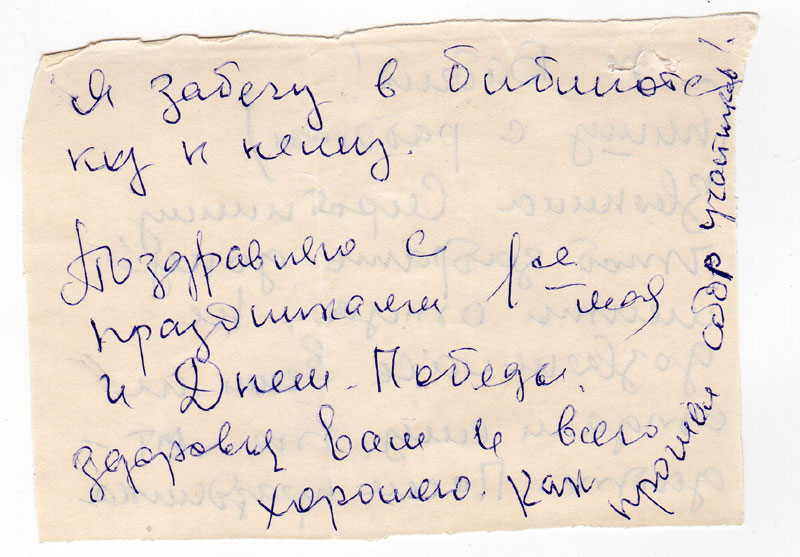 Я забегу в библиоте
ку к нему.
Поздравляю с
праздниками 1ое
мая
и Днем Победы.
здоровья Вам и всего
хорошего. Как
прошел сбор участников!